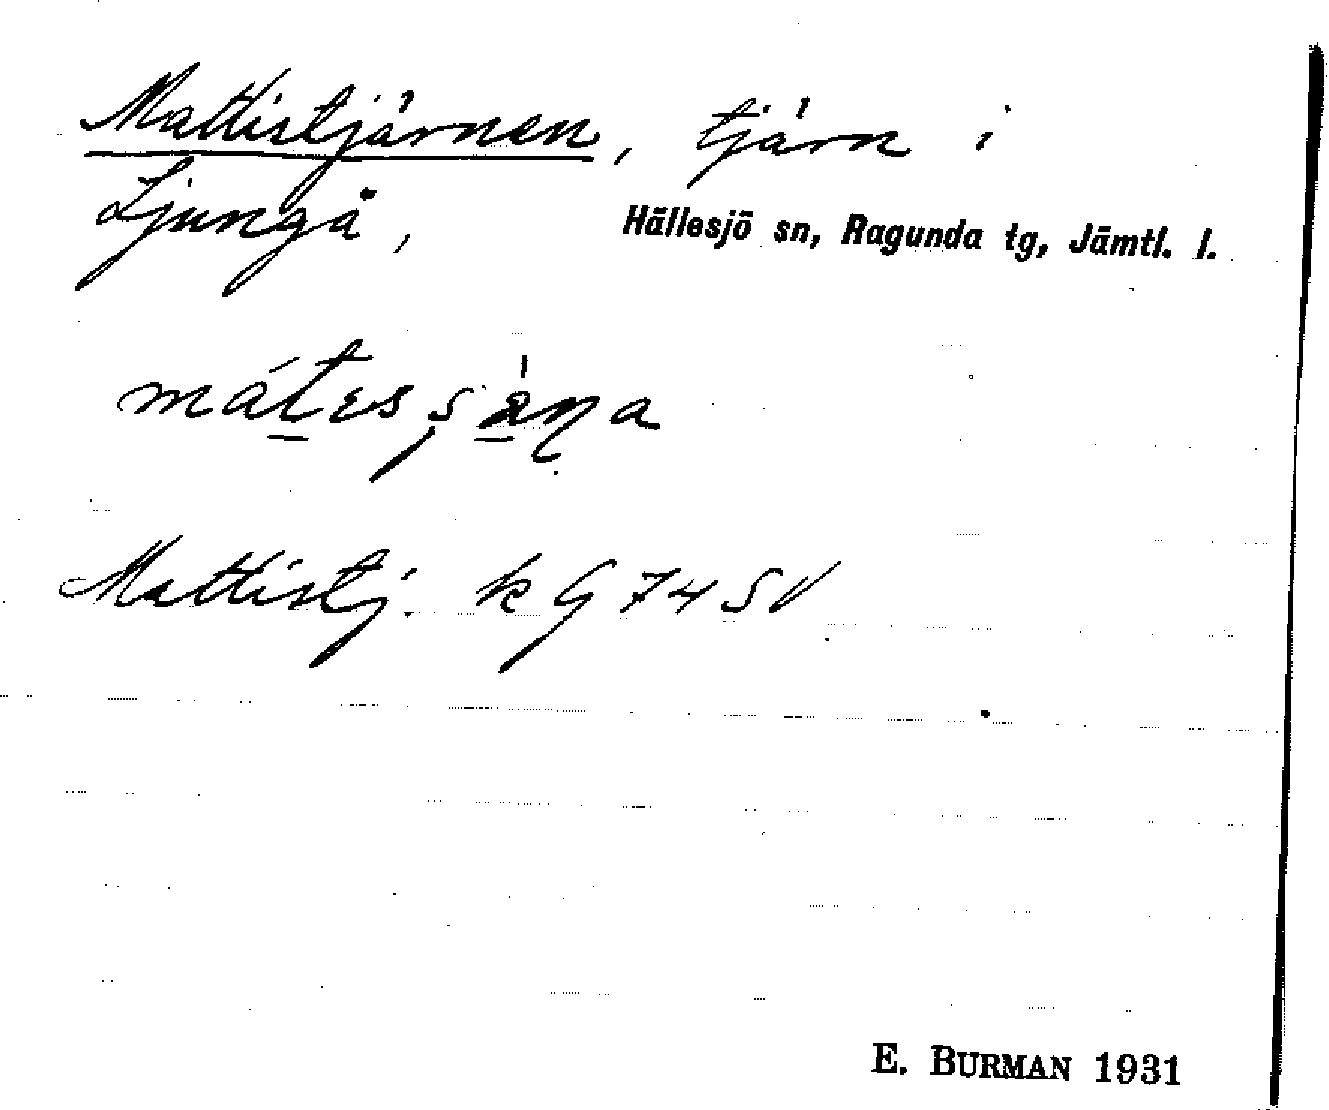 Mattistjärnen, tjärn i
Ljungå, Hällesjö sn, Ragunda tg, Jämtl. l.
Mattistj. k G 74 SV
E. BURMAN 1931